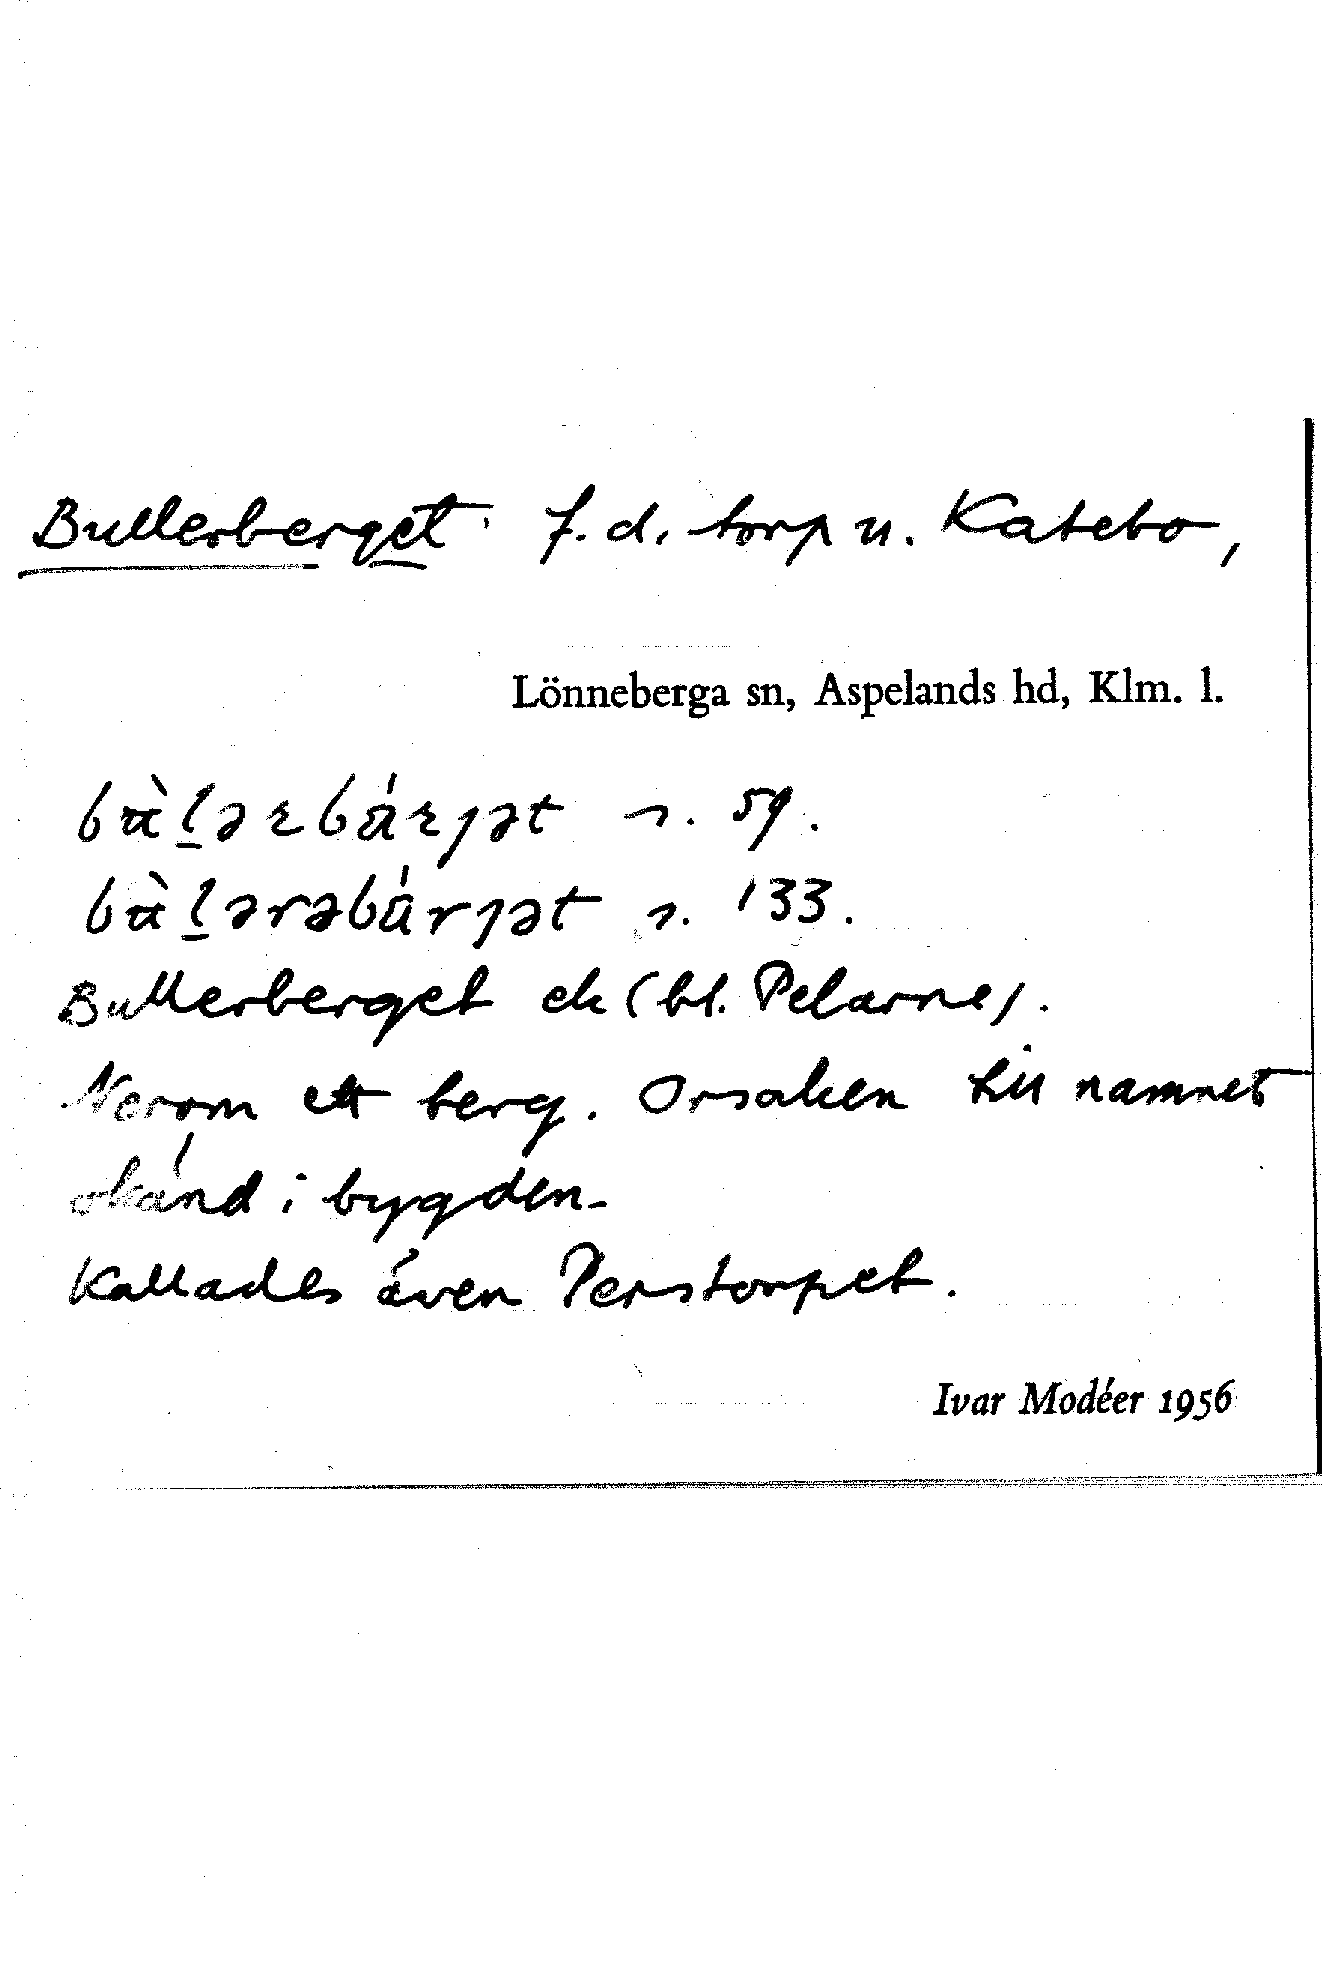 Bullerberget f.d. torp u. Katebo,
Lönneberga sn, Aspelands hd, Klm. l.
s. 59.
s. 133.
Bullerberget ek (bl. Pelarne).
Nerom ett berg. Orsaken till namnet
okänd i bygden.
Kallades även Perstorpet.
Ivar Modéer 1956